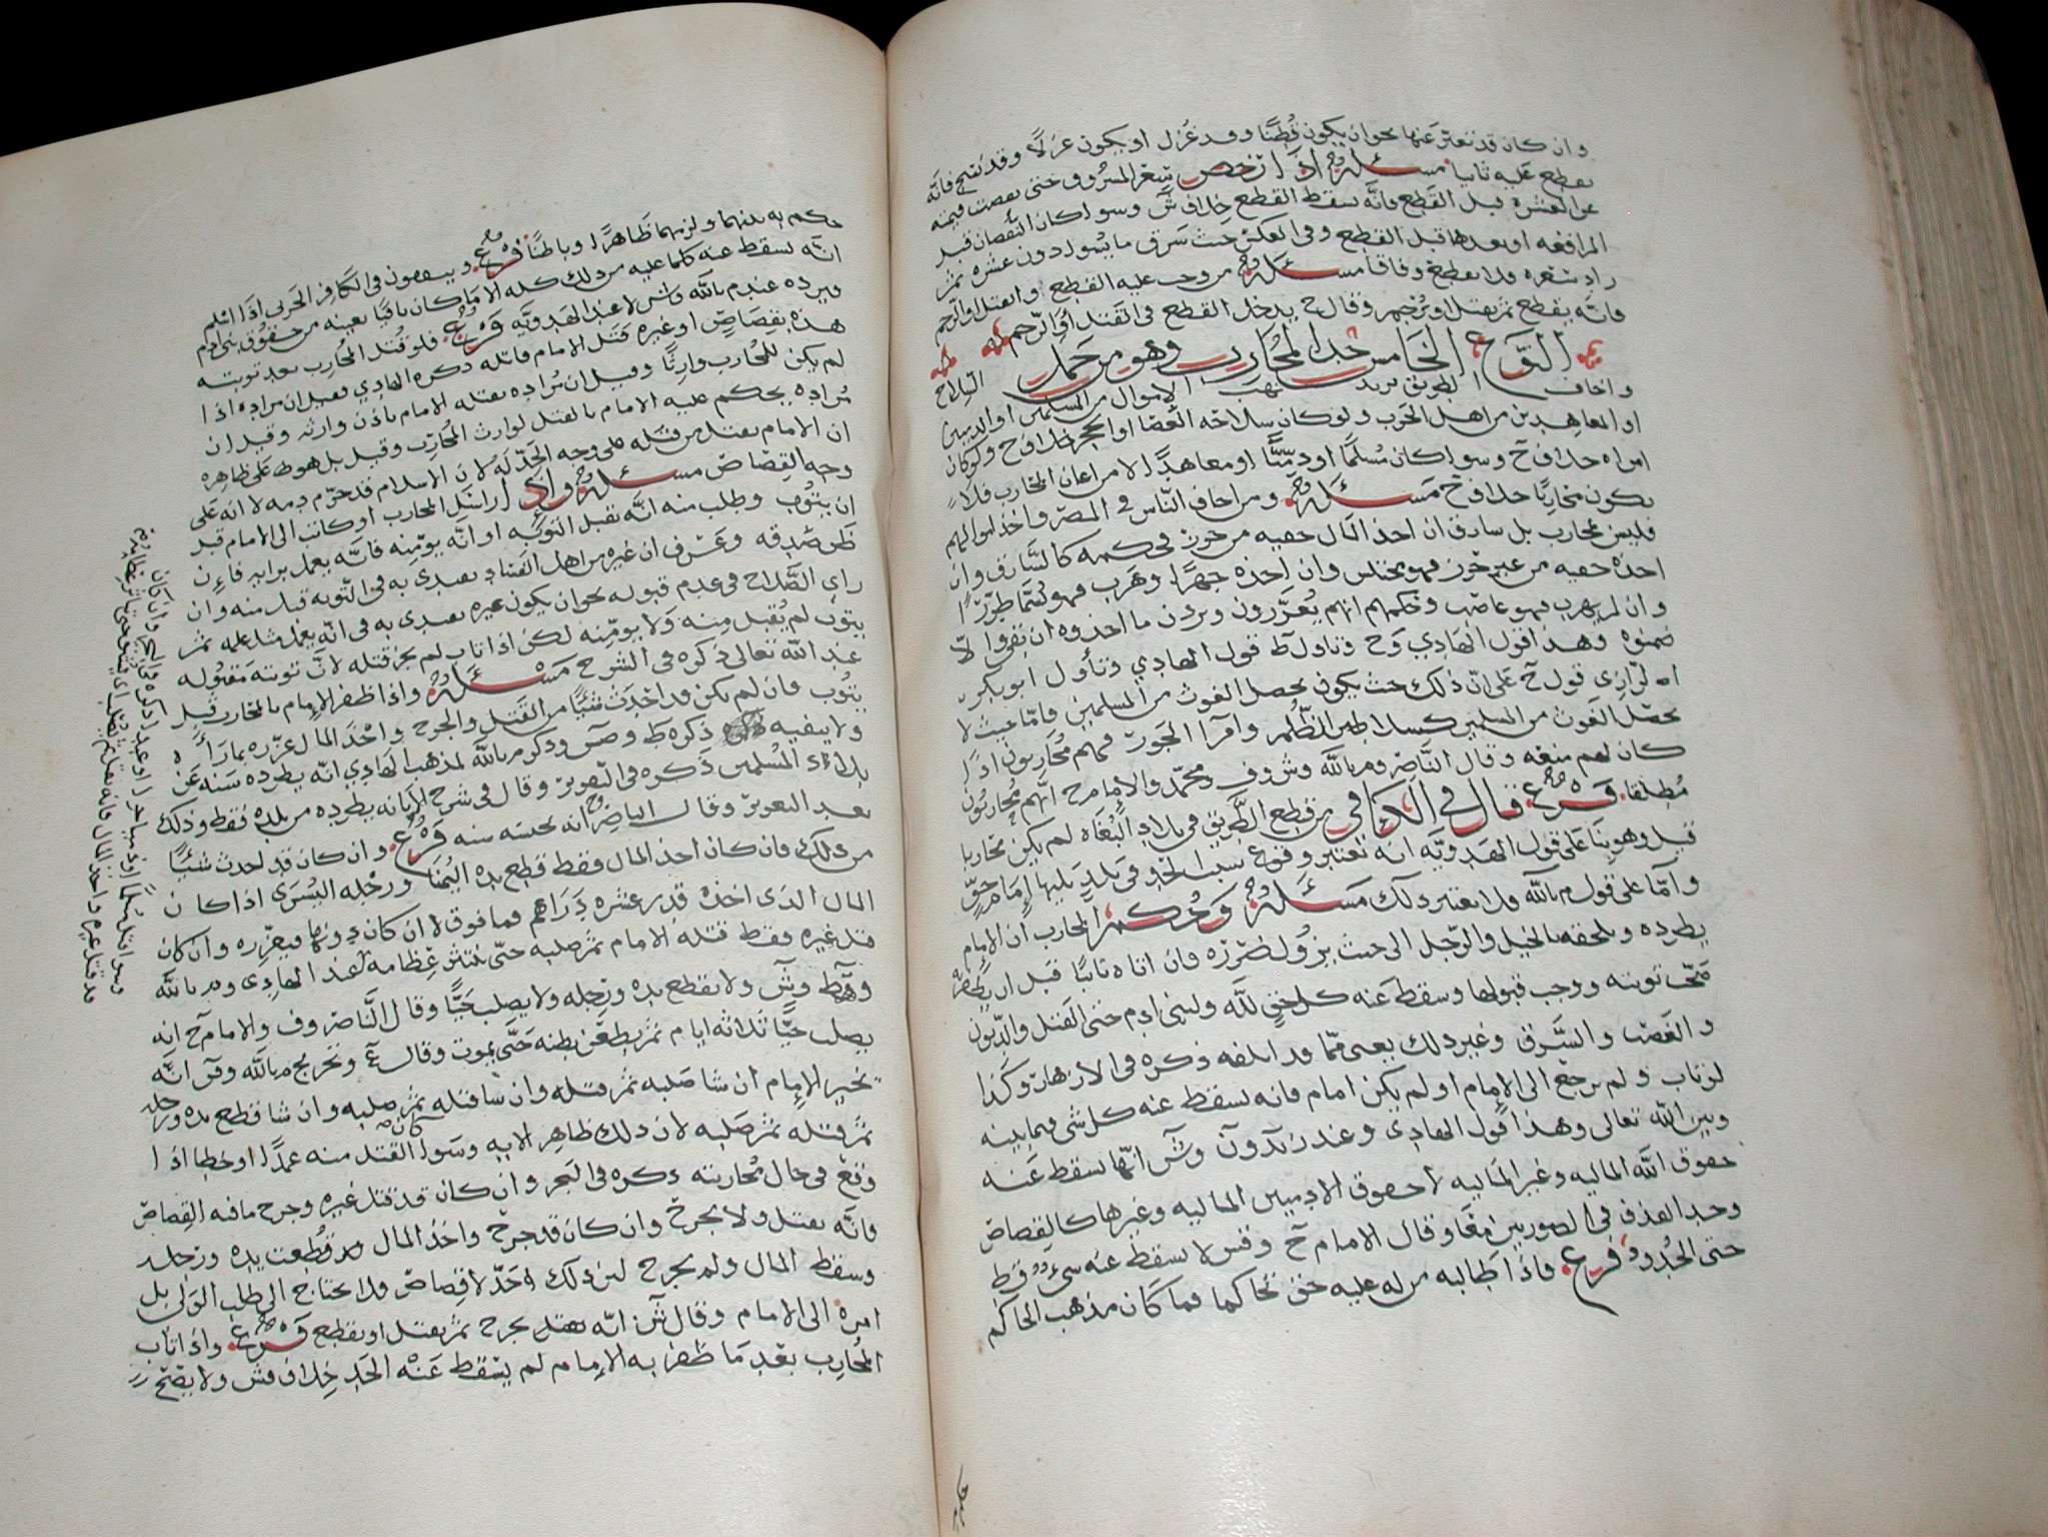 وان كان قد تغير عنها نحو ان يكون قطنا وقد غزل او يكون غزلا وقد نسج فانه
يقطع عليه ثانيا مسئلة اذا رخص سعر المسروق حتى نقصت قيمته
عن العشره قبل القطع فانه يسقط القطع خلاف ش وسوا كان النقصان قبل
المرافعه او بعدها قبل القطع وفي العكس حيث سرق ما يسوا دون عشره ثم
زاد سعره فلا يقطع وفاقا مسئلة من وجب عليه القطع والقتل او الرجم
فانه يقطع ثم يقتل او يرجم وقال ح يدخل القطع في القتل او الرجم
النوع الخامس حد المحارب وهو من حمل السلاح
واخاف الطريق يريد نهب الاموال من المسلمين او الذميين
او المعاهدين من اهل الحرب ولو كان سلاحه العصا او الحجر خلاف ح ولو كان
امراه خلاف ح وسوا كان مسلما او ذميا او معاهدا لا من اعان المحارب فلا
يكون محاربا خلاف ح مسئلة ومن اخاف الناس في المصر واخذ اموالهم
فليس بمحارب بل سارق ان اخذ المال خفيه من حرز في حكمه كالسارق وان
اخذه خفيه من غير حرز فهو مختلس وان اخذه جهرا وهرب فهو يسما طرارا
وان لم يهرب فهو غاصب وحكمهم انهم يعزرون ويردون ما اخذوه ان بقي والا
ضمنوه وهذا قول الهادي وح وتاول ط قول الهادي وتاول ابو بكر
الرازي قول ح على ان ذلك حيث يكون يحصل الغوث من المسلمين فاما حيث لا
يحصل الغوث من المسلمين كسلاطين الظلم وامرا الجور فهم محاربون اذا
كان لهم منعه وقال الناصر وم بالله وش وف ومحمد والامام ح انهم محاربون
مطلقا فرع قال في الكافي من قطع الطريق في بلاد البغاه لم يكن محاربا
قيل وهو بنا على قول الهدويه انه يعتبر وقوع سبب الحد في بلد يليها امام حق
واما على قول م بالله فلا يعتبر ذلك مسئلة وحكم المحارب ان الامام
يطرده ويلحقه بالخيل والرجل الى حيث يزول ضرره فان اتاه تائبا قبل ان يظفر به
صحت توبته ووجب قبولها وسقط عنه كل حق لله ولبني ادم حتى القتل والديون
والغصب والسرق وغير ذلك يعني مما قد اتلفه ذكره في الازهار وكذا
لو تاب ولم يرجع الى الامام او لم يكن امام فانه يسقط عنه كل شي فيما بينه
وبين الله تعالى وهذا قول الهادي وعند وش انها تسقط عنه
حقوق الله الماليه وغير الماليه لا حقوق الادميين الماليه وغيرها كالقصاص
وحد القذف في الصورتين معا وقال الامام ح وقيس لا يسقط عنه شيء قط
حتى الحدود فرع فاذا طالبه من له عليه حق تحاكما فما كان مذهب الحاكم
حكم به بينهما ولزمهما ظاهرا وباطنا فرع ويتفقون في الكافر الحربي اذا اسلم
انه يسقط عنه كلما عليه من ذلك كله الا ما كان باقيا بعينه من حقوق بني ادم
فيرده عند م بالله وش لا عند الهدويه فرع فلو قتل المحارب بعد توبته
هذه بقصاص او غيره قتل الامام قاتله ذكره الهادي فقيل ان مراده اذا
لم يكن للمحارب وارثا وقيل ان مراده يقتله الامام باذن وارثه وقيل ان
مراده يحكم عليه الامام بالقتل لوارث المحارب وقيل بل هو على ظاهره
ان الامام يقتل من قتله على وجه الحد له لان الاسلام قد حرم دمه لا انه على
وجه القصاص مسئلة واذا راسل المحارب او كاتب الى الامام قبل
ان يتوب وطلب منه انه يقبل التوبه او انه يومنه فانه يعمل برايه فان
ظن صدقه وعرف ان غيره من اهل الفساد يقتدي به في التوبه قبل منه وان
راى الصلاح في عدم قبوله نحو ان يكون غيره يقتدي به في انه يفعل مثل فعله ثم
يتوب لم يقبل منه ولا يومنه لكن اذا تاب لم يجز قتله لان توبته مقبوله
عند الله تعالى ذكره في الشرح مسئلة واذا ظفر الامام بالمحارب قبل
يتوب فان لم يكن قد احدث شيئا من القتل والجرح واخذ المال عزره بما راى
ولا ينفيه ذكره ط وص وذكر م بالله لمذهب الهادي انه يطرده سنه عن
بلاد المسلمين ذكره في التقرير وقال في شرح الابانه يطرده من بلده فقط وذلك
بعد التعزير وقال الناصر انه يحبسه سنه فرع وان كان قد احدث شيئا
من ذلك فان كان اخذ المال فقط قطع يده اليمنا ورجله اليسرى اذا كان
المال الذي اخذه قدر عشره دراهم فما فوق لا ان كان دونها فيعزره وان كان
قتل غيره فقط قتله الامام ثم صلبه حتى تنتثر عظامه عند الهادي وم بالله
وط وش ولا يقطع يده ورجله ولا يصلب حيا وقال الناصر وف والامام ح انه
يصلب حيا ثلاثه ايام ثم يطعن بطنه حتى يموت وقال ع وتخريج م بالله وق انه
يخير الامام ان شا صلبه ثم قتله وان شا قتله ثم صلبه وان شا قطع يده ورجله
ثم قتله ثم صلبه لان ذلك ظاهر الايه وسوا كان القتل منه عمدا او خطا اذا
وقع في حال محاربته ذكره في البحر وان كان قد قتل غيره وجرح ما فيه القصاص
فانه يقتل ولا يجرح وان كان قد جرح واخذ المال فقد قطعت يده ورجله
وسقط المال ولم يجرح لان ذلك حد لا قصاص فلا يحتاج الى طلب الولي بل
امره الى الامام وقال ش انه يجرح ثم يقتل او يقطع فرع واذا تاب
المحارب بعد ما ظفر به الامام لم يسقط عنه الحد خلاف ش ولا يصح